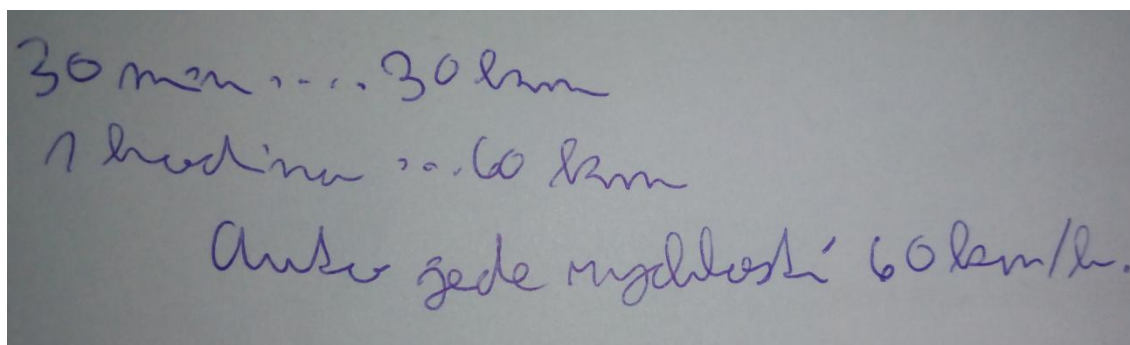 30 min .... 30 km
1 hodina .... 60 km
Auto jede rychlostí 60 km/h.